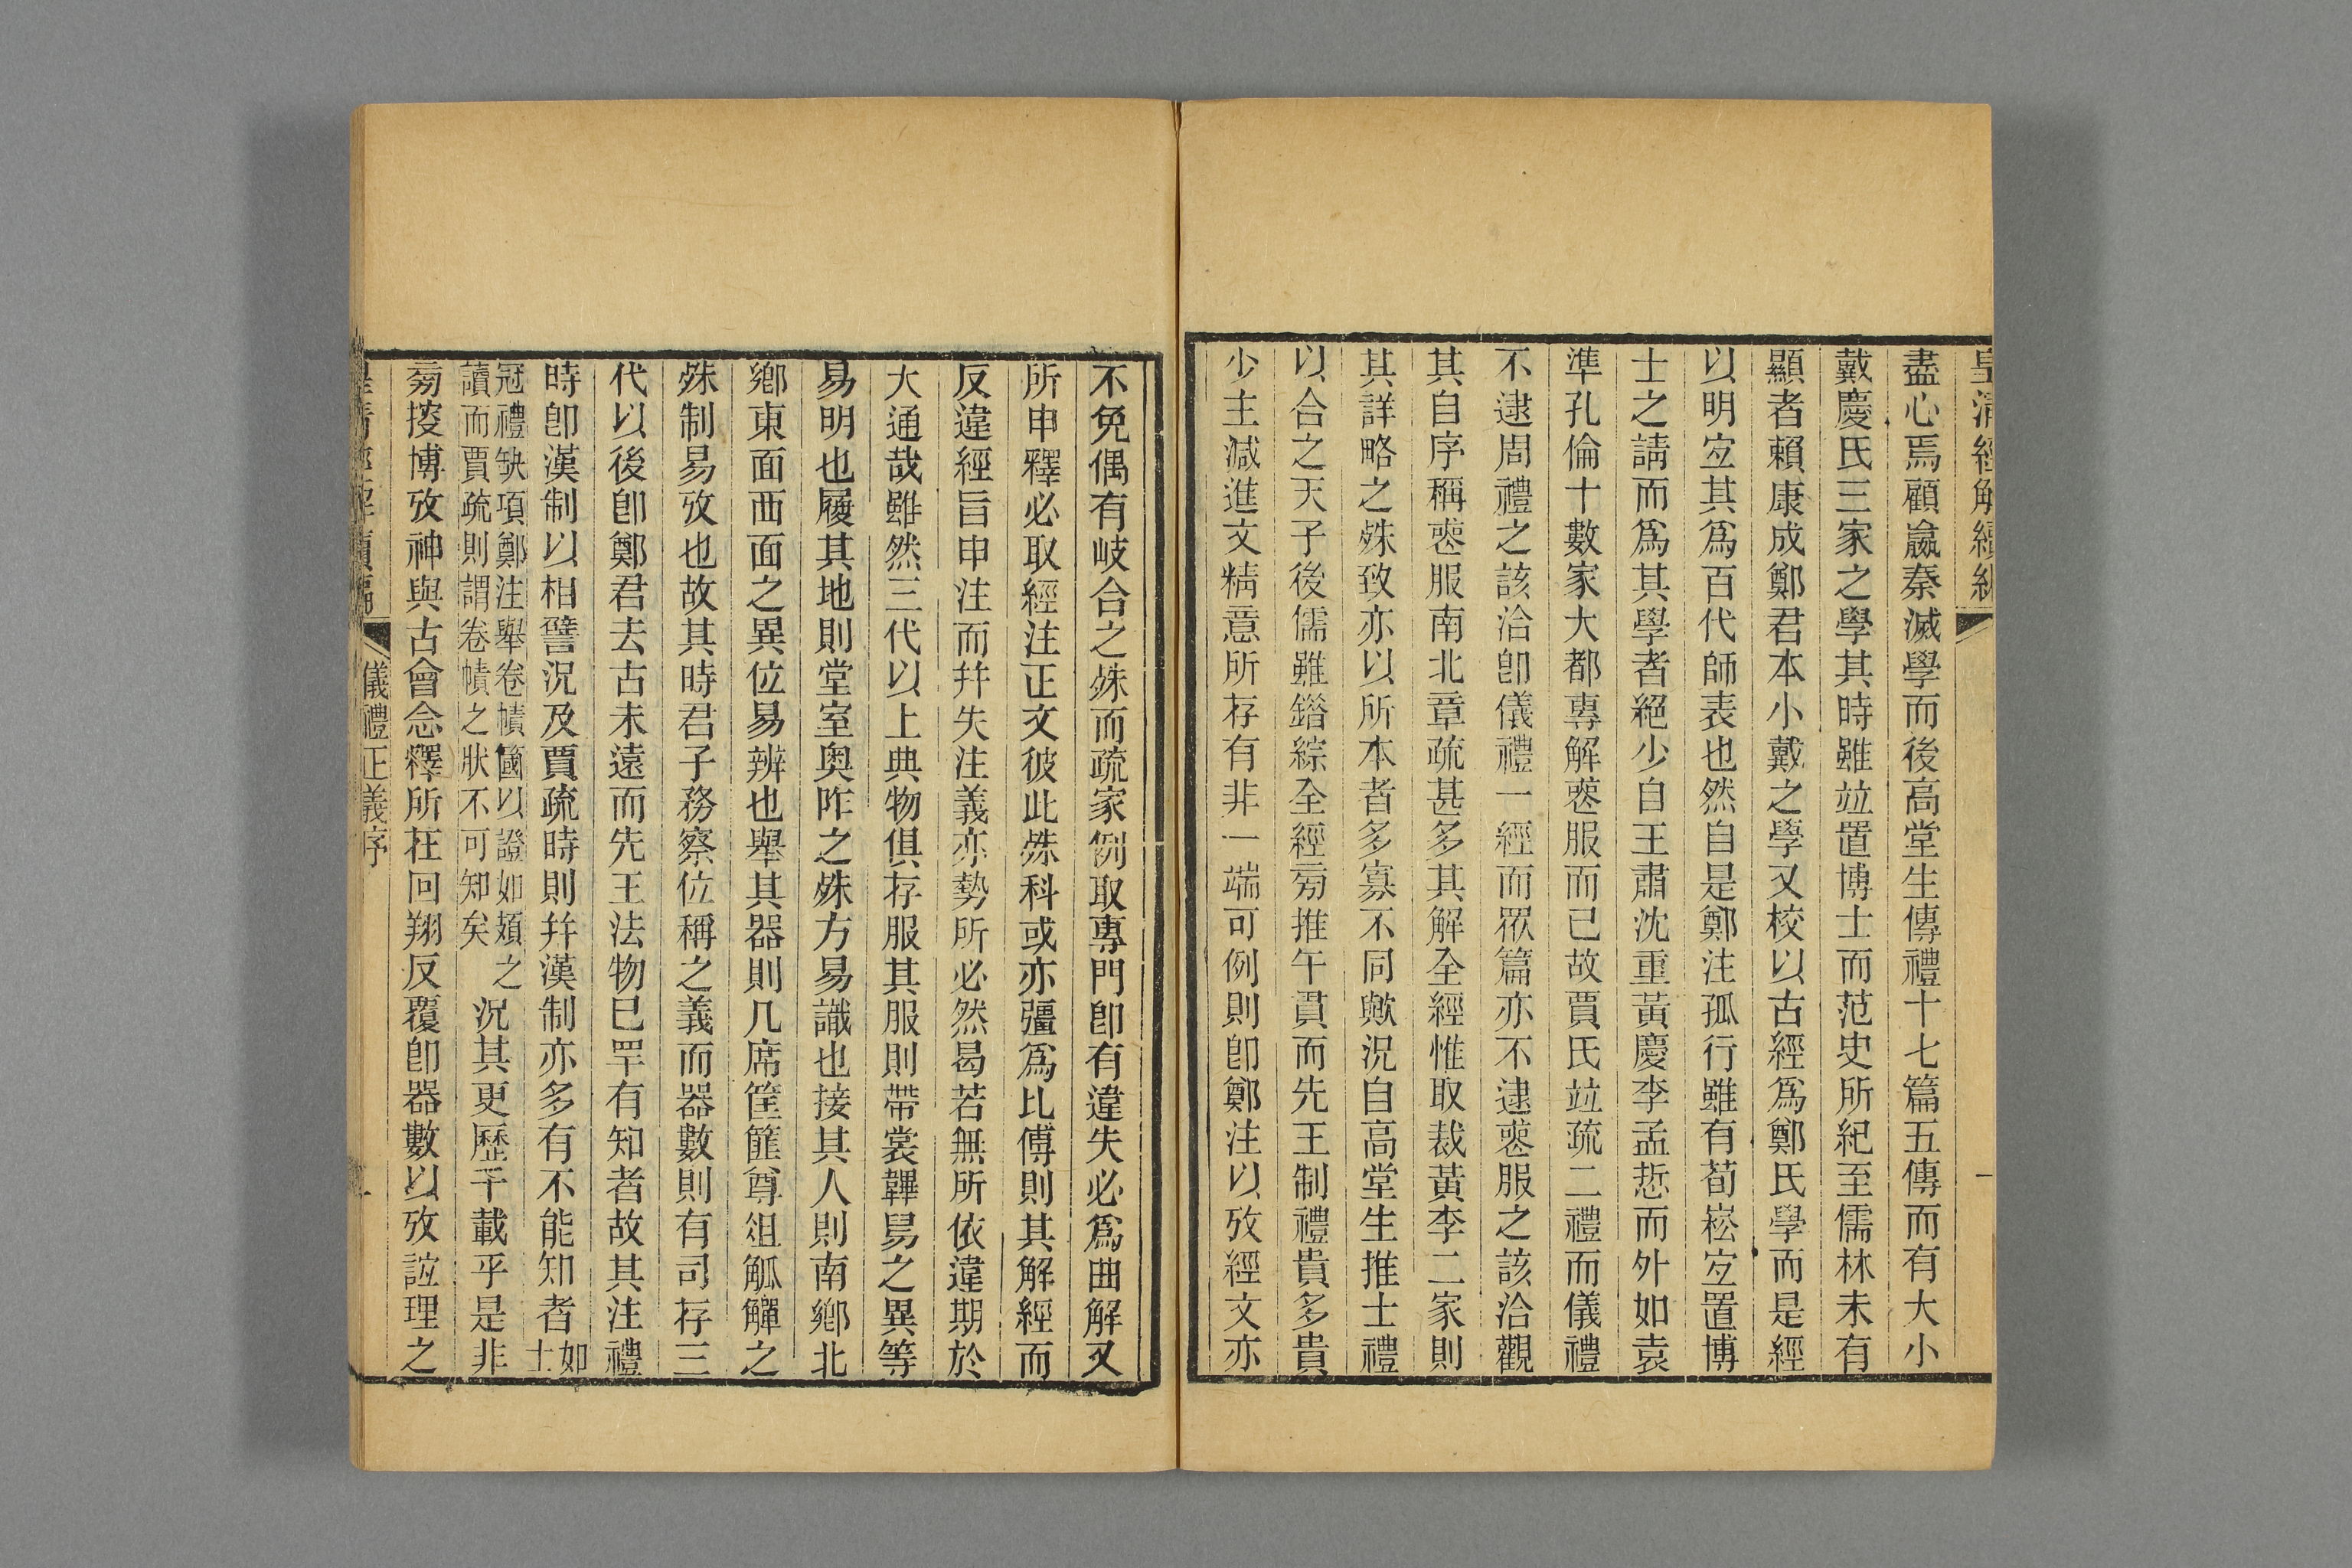 皇清經解續編
一
盡心焉顧嬴秦滅學而後高堂生傳禮十七篇五傳而有大小
戴慶氏三家之學其時雖竝置博士而范史所紀至儒林未有
顯者賴康成鄭君本小戴之學又校以古經爲鄭氏學而是經
以明㝎其爲百代師表也然自是鄭注孤行雖有荀崧㝎置博
士之請而爲其學者絕少自王肅沈重黃慶李孟悊而外如袁
準孔倫十數家大都專解喪服而已故賈氏竝疏二禮而儀禮
不逮周禮之該洽卽儀禮一經而眾篇亦不逮喪服之該洽觀
其自序稱喪服南北章疏甚多其解全經惟取裁黃李二家則
其詳略之殊致亦以所本者多寡不同歟況自高堂生推士禮
以合之天子後儒雖錯綜全經㫄推午貫而先王制禮貴多貴
少主減進文精意所存有非一端可例則卽鄭注以攷經文亦
不免偶有岐合之殊而疏家例取專門卽有違失必爲曲解又
所申釋必取經注正文彼此殊科或亦彊爲比傅則其解經而
反違經旨申注而幷失注義亦勢所必然曷若無所依違期於
大通哉雖然三代以上典物俱存服其服則帶裳韠舄之異等
易明也履其地則堂室奧阼之殊方易識也接其人則南鄉北
鄉東面西面之異位易辨也舉其器則几席筐篚尊俎觚觶之
殊制易攷也故其時君子務察位稱之義而器數則有司存三
代以後卽鄭君去古未遠而先王法物已罕有知者故其注禮
時卽漢制以相譬況及賈疏時則幷漢制亦多有不能知者如士
冠禮缺項鄭注舉卷幘簂以證如頍之
讀而賈疏則謂卷幘之狀不可知矣
況其更歷千載乎是非
㫄搜博攷神與古會念釋所在回翔反覆卽器數以攷誼理之
皇清經解續編
儀禮正義序
一